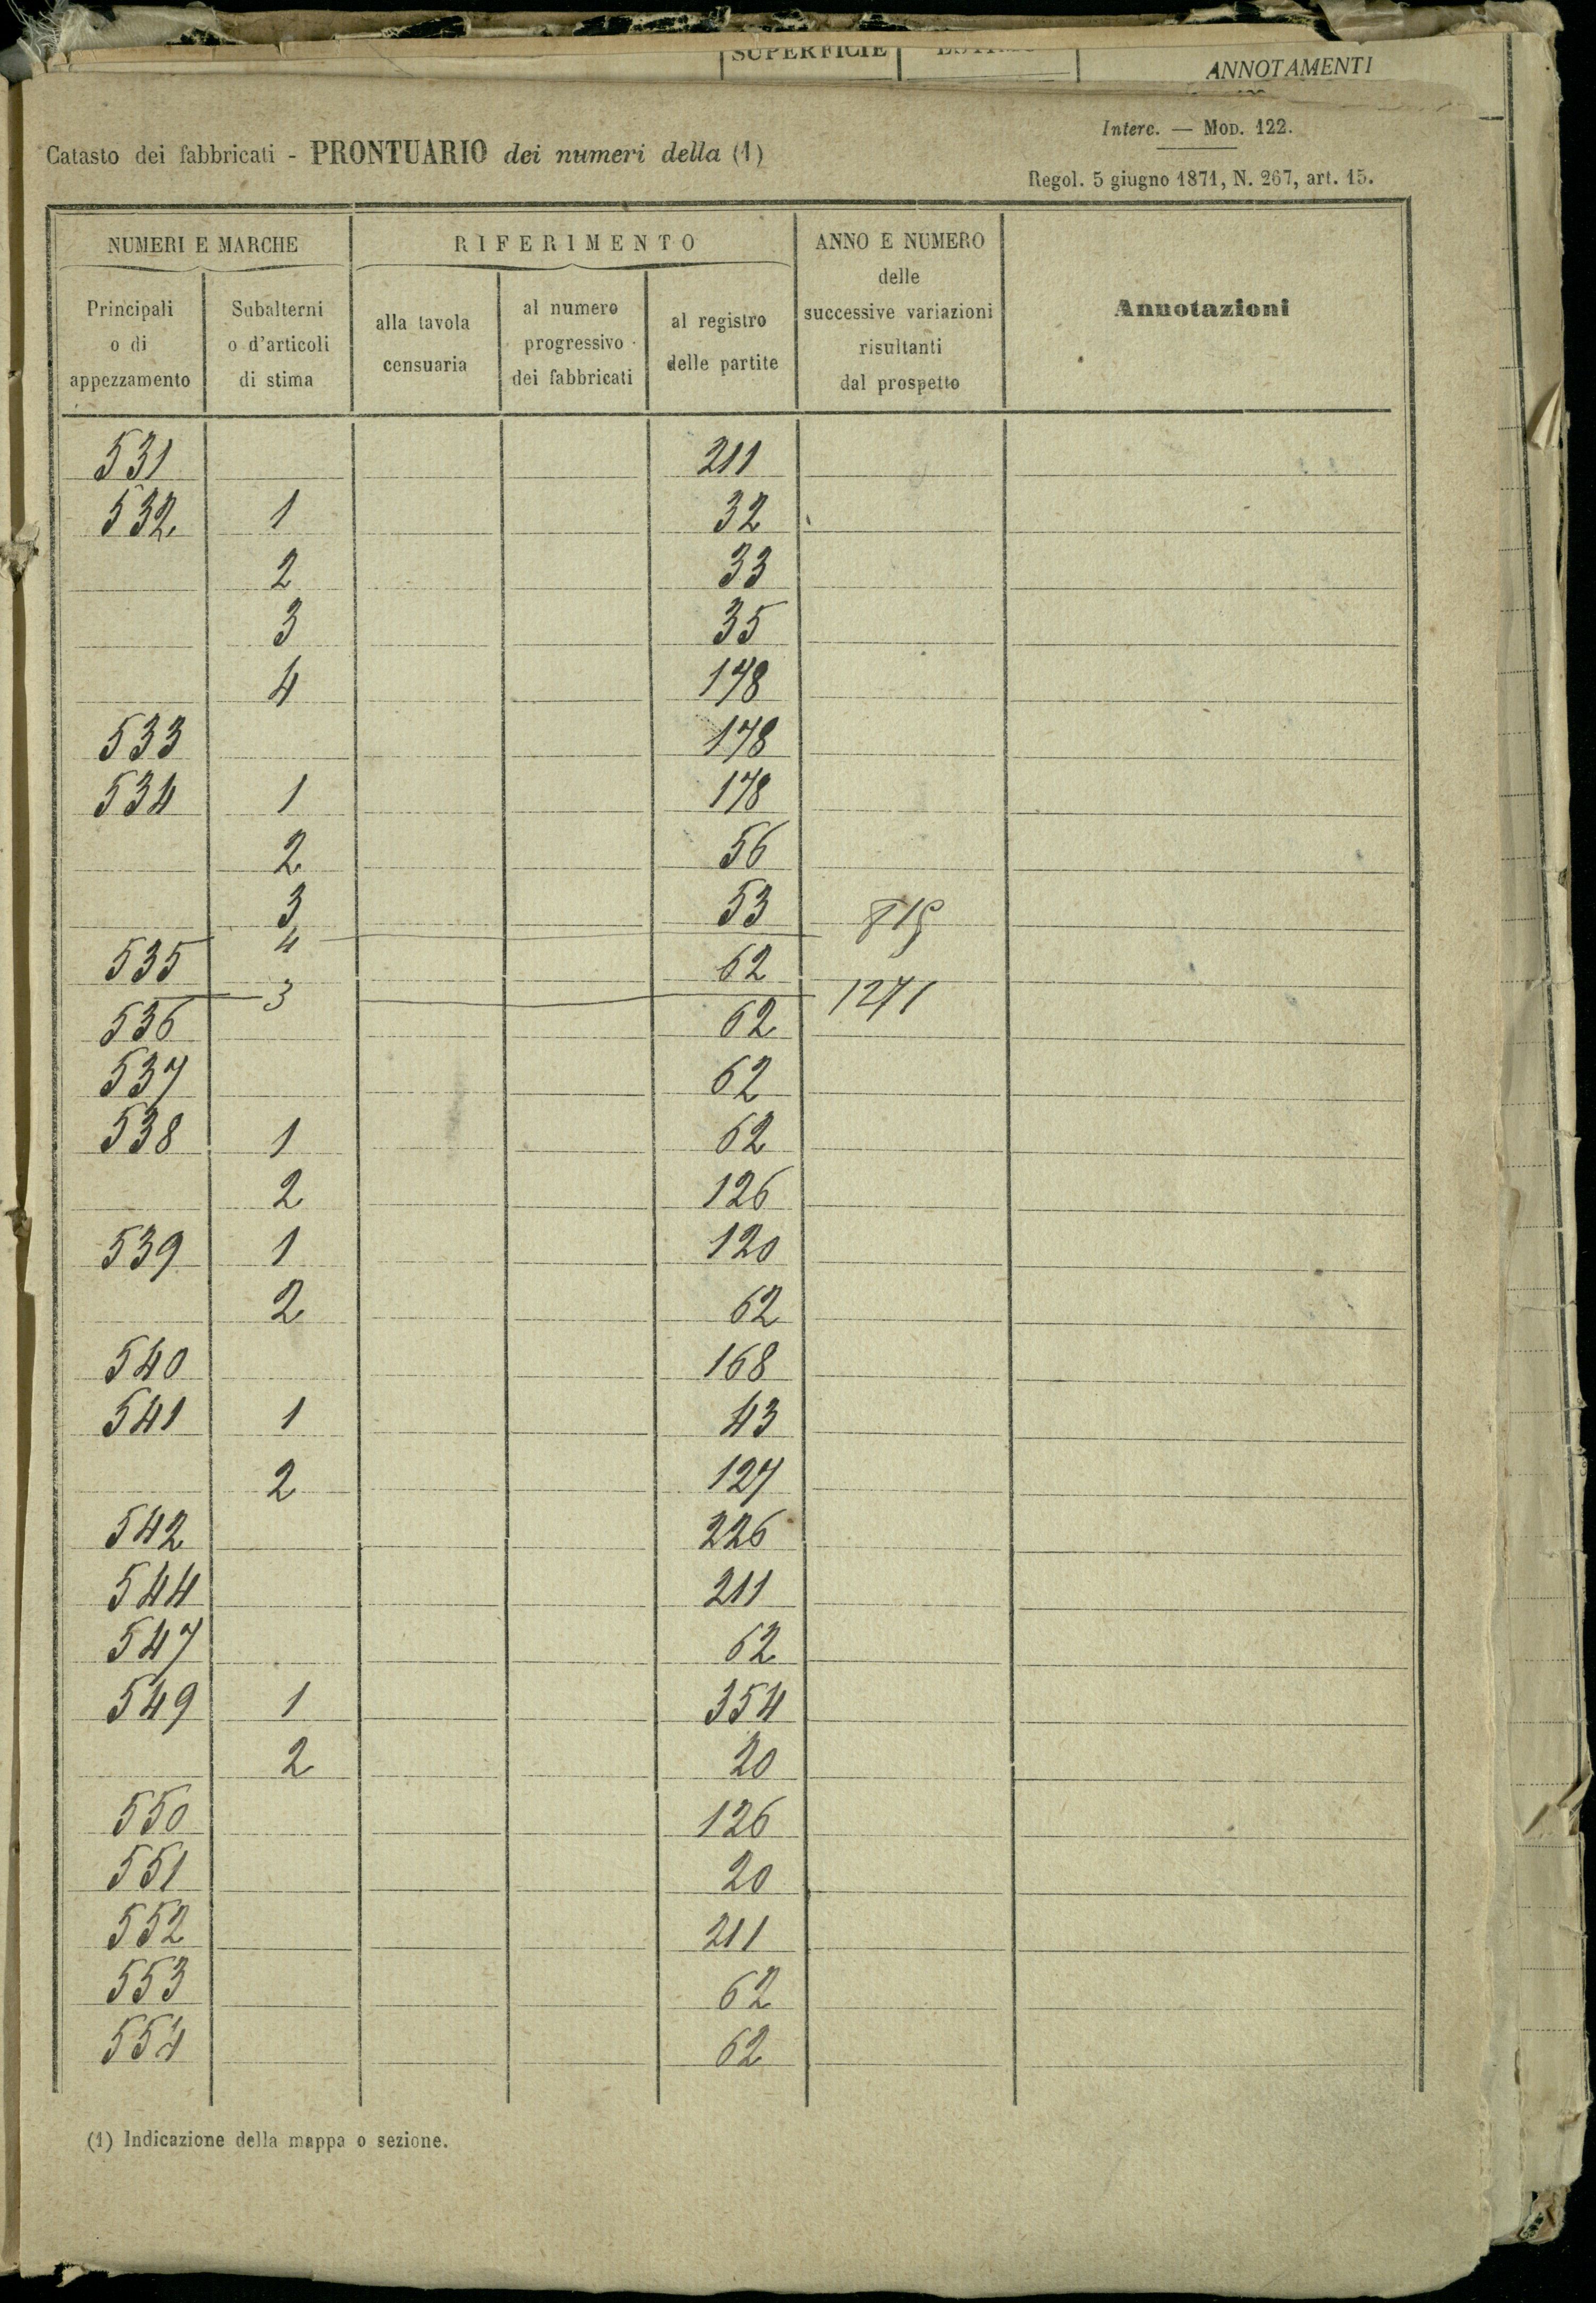 SUPERFICIE
ANNOTAMENTI
Interc. — Mod. 122.
Catasto dei fabbricati - PRONTUARIO dei numeri della (1)
Regol. 5 giugno 1871, N. 267, art. 15.
NUMERI E MARCHE RIFERIMENTO ANNO E NUMERO delle successive variazioni risultanti dal prospetto Annotazioni
Principali o di appezzamento Subalterni o d'articoli di stima alla tavola censuaria al numero progressivo dei fabbricati al registro delle partite
531 211
532 1 32
2 33
3 35
4 178
533 178
534 1 178
2 56
3 53
4 819
535 62
3 1271
536 62
537 62
538 1 62
2 126
539 1 120
2 62
540 168
541 1 43
2 127
542 226
544 211
547 62
549 1 354
2 20
550 126
551 20
552 211
553 62
554 62
(1) Indicazione della mappa o sezione.